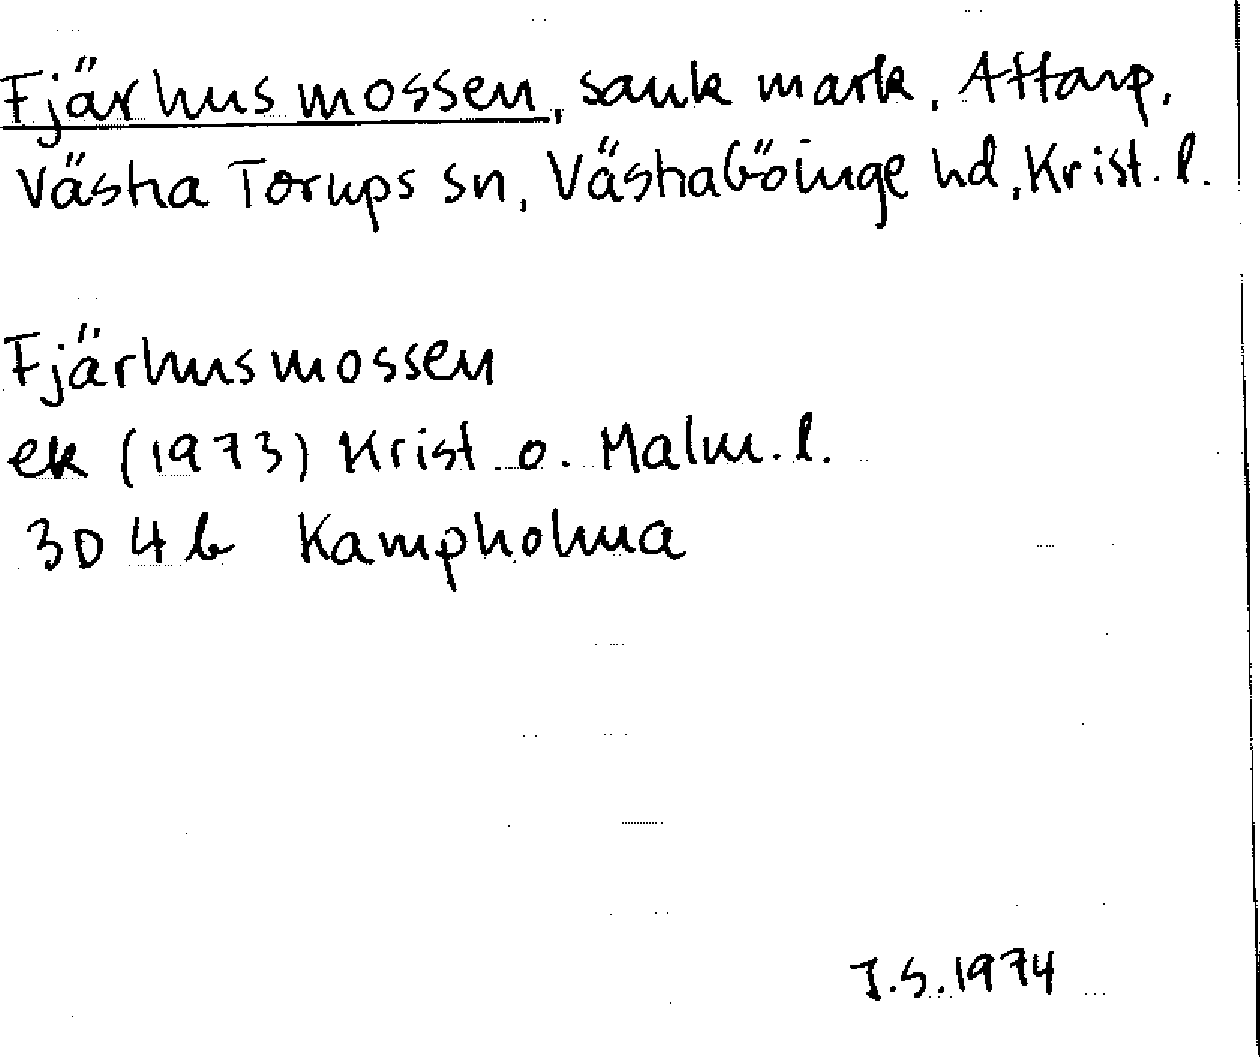 Fjärhusmossen, sank mark, Attarp,
Västra Torups sn, Västra Göinge hd, Krist. l.
Fjärhusmossen
ek (1973) Krist o. Malm. l.
3D 4b Kampholma
J.S. 1974